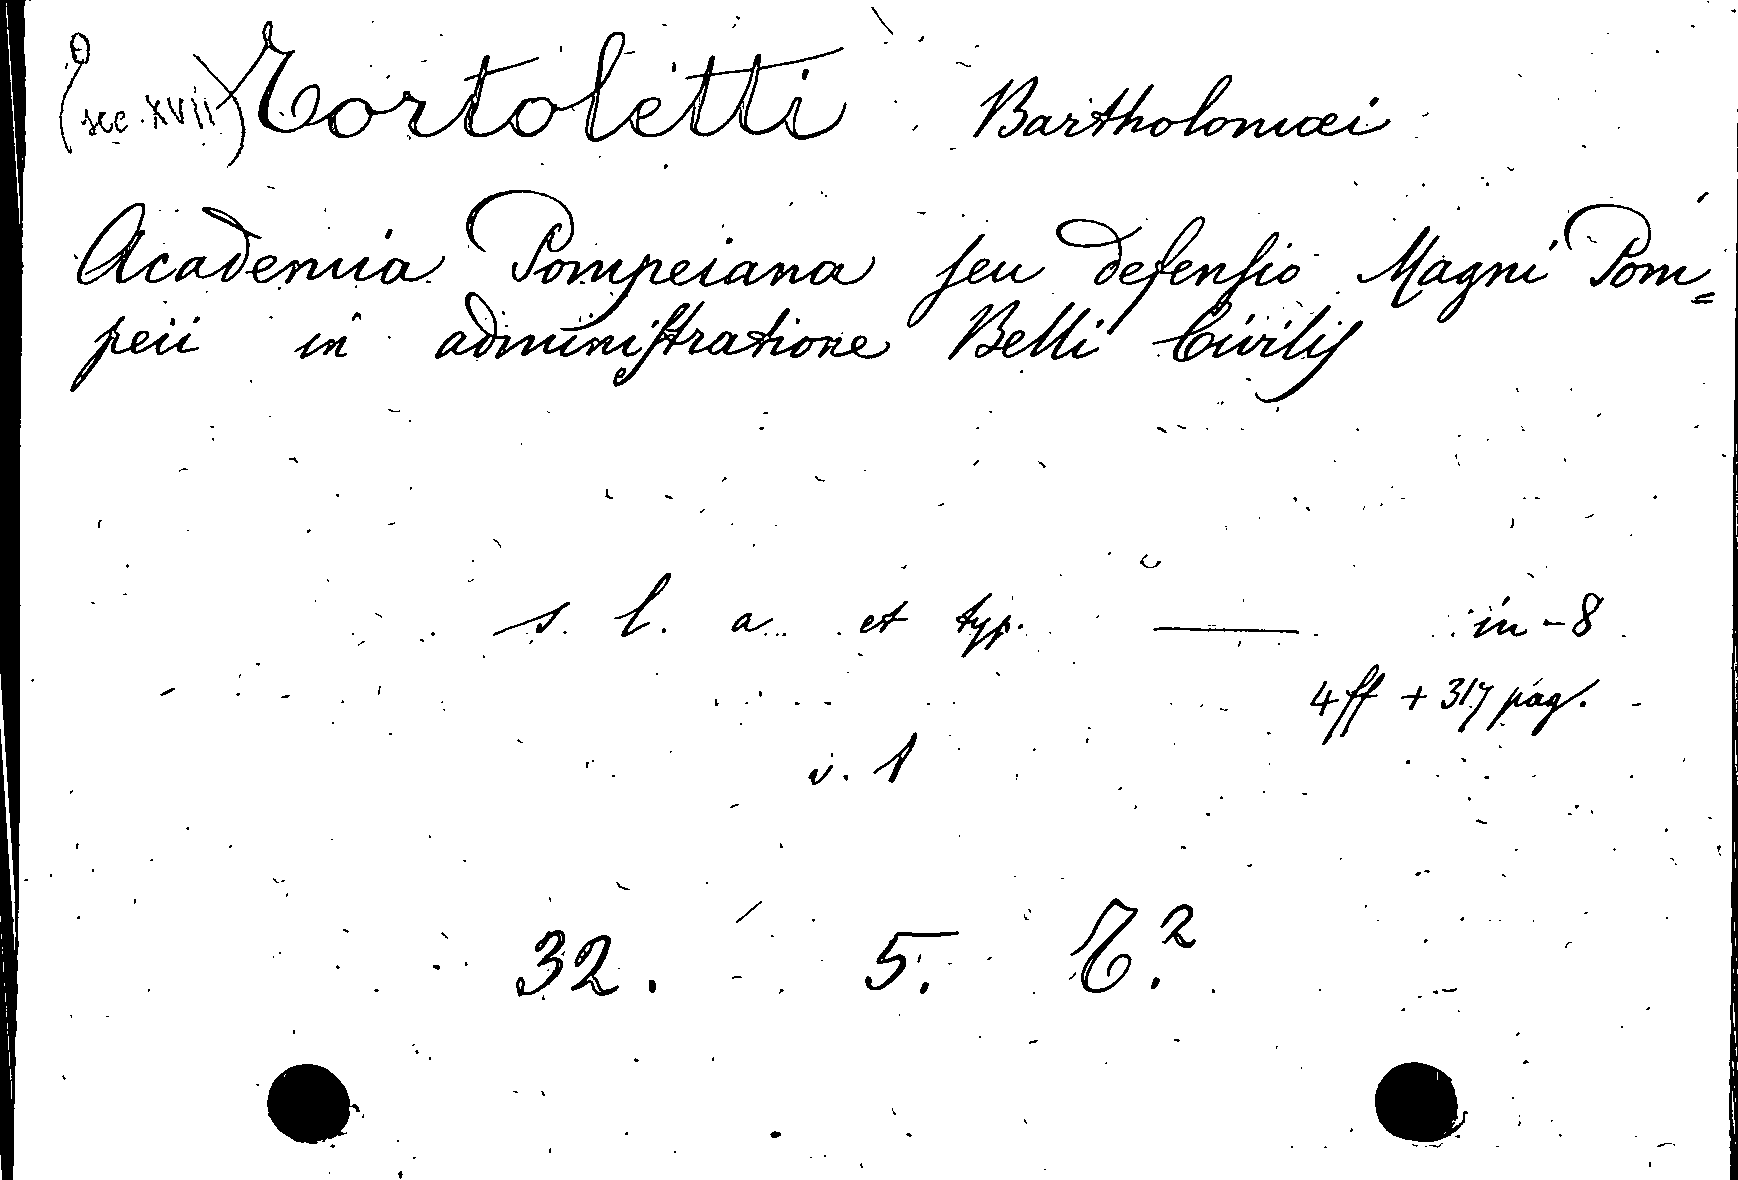 (sec. XVII) Tortoletti Bartholomæi
Academia Pompeiana ſeu defenſio Magni Pom=
peii in adminiſtratione Belli Civilis
s. l. a. et typ. — in-8
4 ff + 317 pag.
v. 1
32. 5. T.²